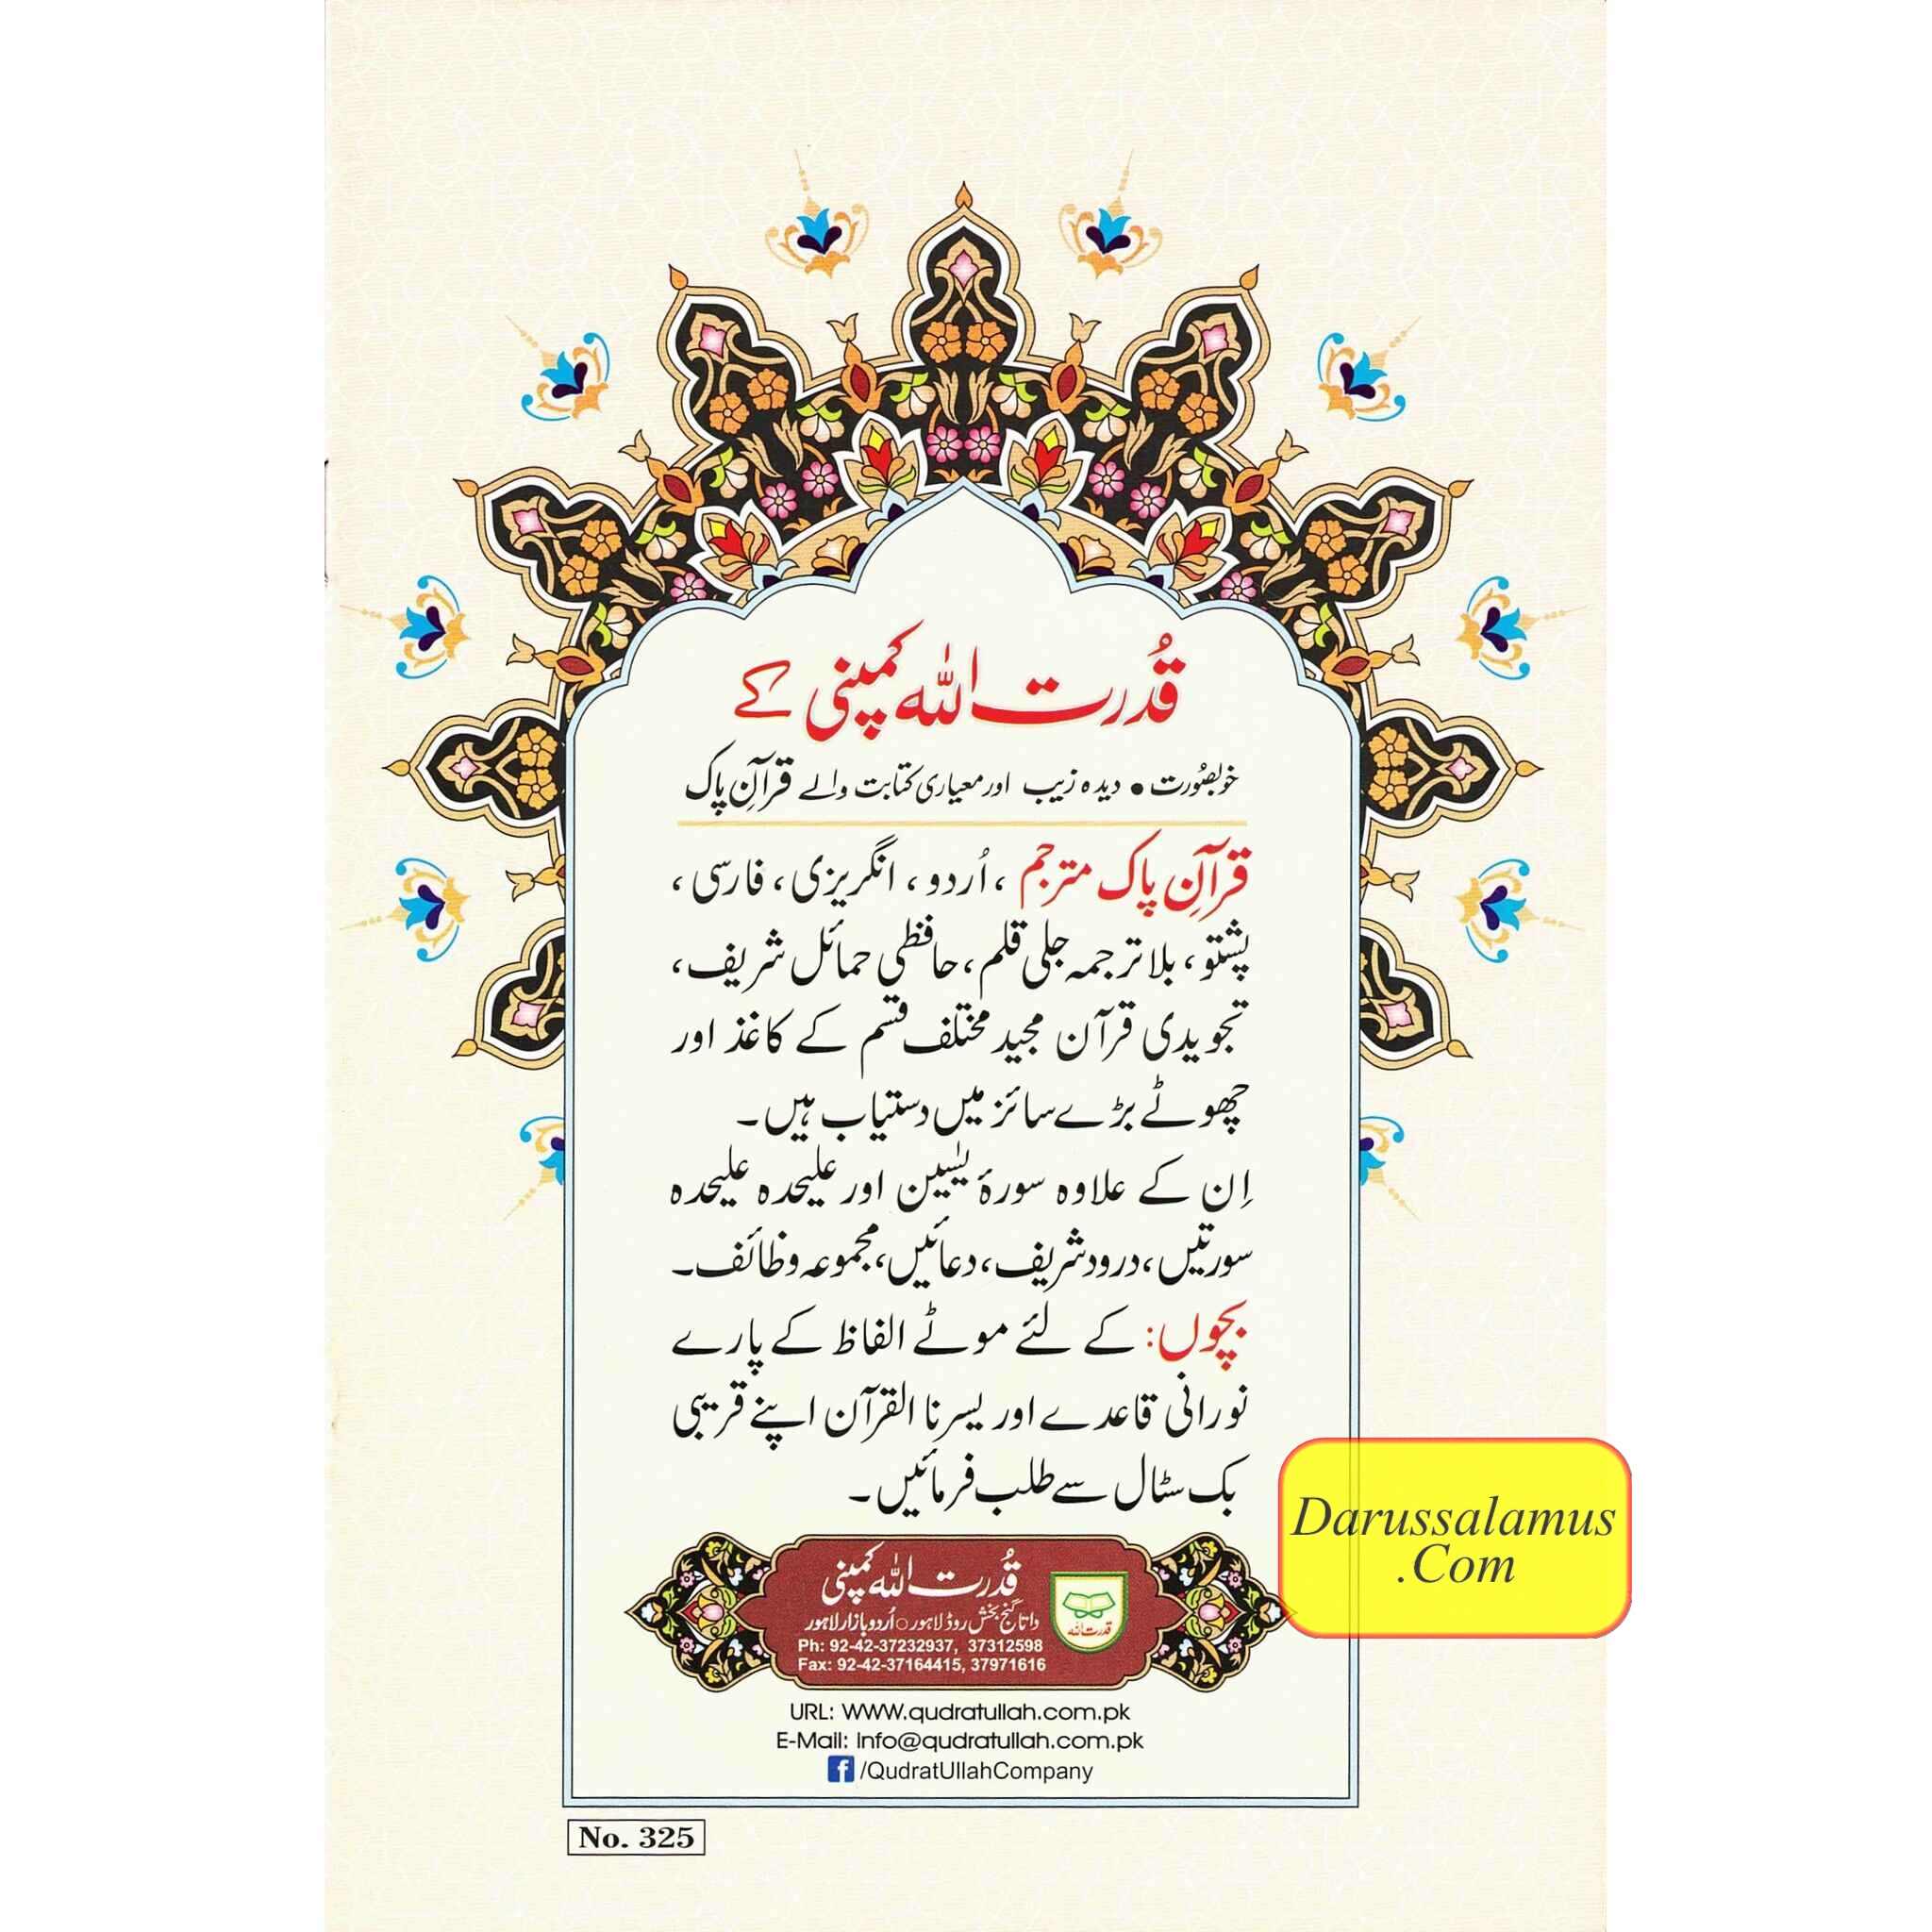 قُدرت اللہ کمپنی کے
خوبصُورت • دیدہ زیب اور معیاری کتابت والے قرآنِ پاک
قرآنِ پاک مترجم ، اُردو ، انگریزی ، فارسی ،
پشتو ، بلا ترجمہ جلی قلم ، حافظی حمائل شریف ،
تجویدی قرآن مجید مختلف قسم کے کاغذ اور
چھوٹے بڑے سائز میں دستیاب ہیں ۔
اِن کے علاوہ سورۂ یٰسین اور علیحدہ علیحدہ
سورتیں ، درود شریف ، دعائیں ، مجموعہ وظائف ۔
بچوں : کے لئے موٹے الفاظ کے پارے
نورانی قاعدے اور یسرنا القرآن اپنے قریبی
بک سٹال سے طلب فرمائیں ۔
Darussalamus
.Com
قُدرت اللہ کمپنی
داتا گنج بخش روڈ لاہور ○ اُردو بازار لاہور
Ph: 92-42-37232937, 37312598
Fax: 92-42-37164415, 37971616
قدرت اللہ
URL: WWW.qudratullah.com.pk
E-Mail: Info@qudratullah.com.pk
f /QudratUllahCompany
No. 325